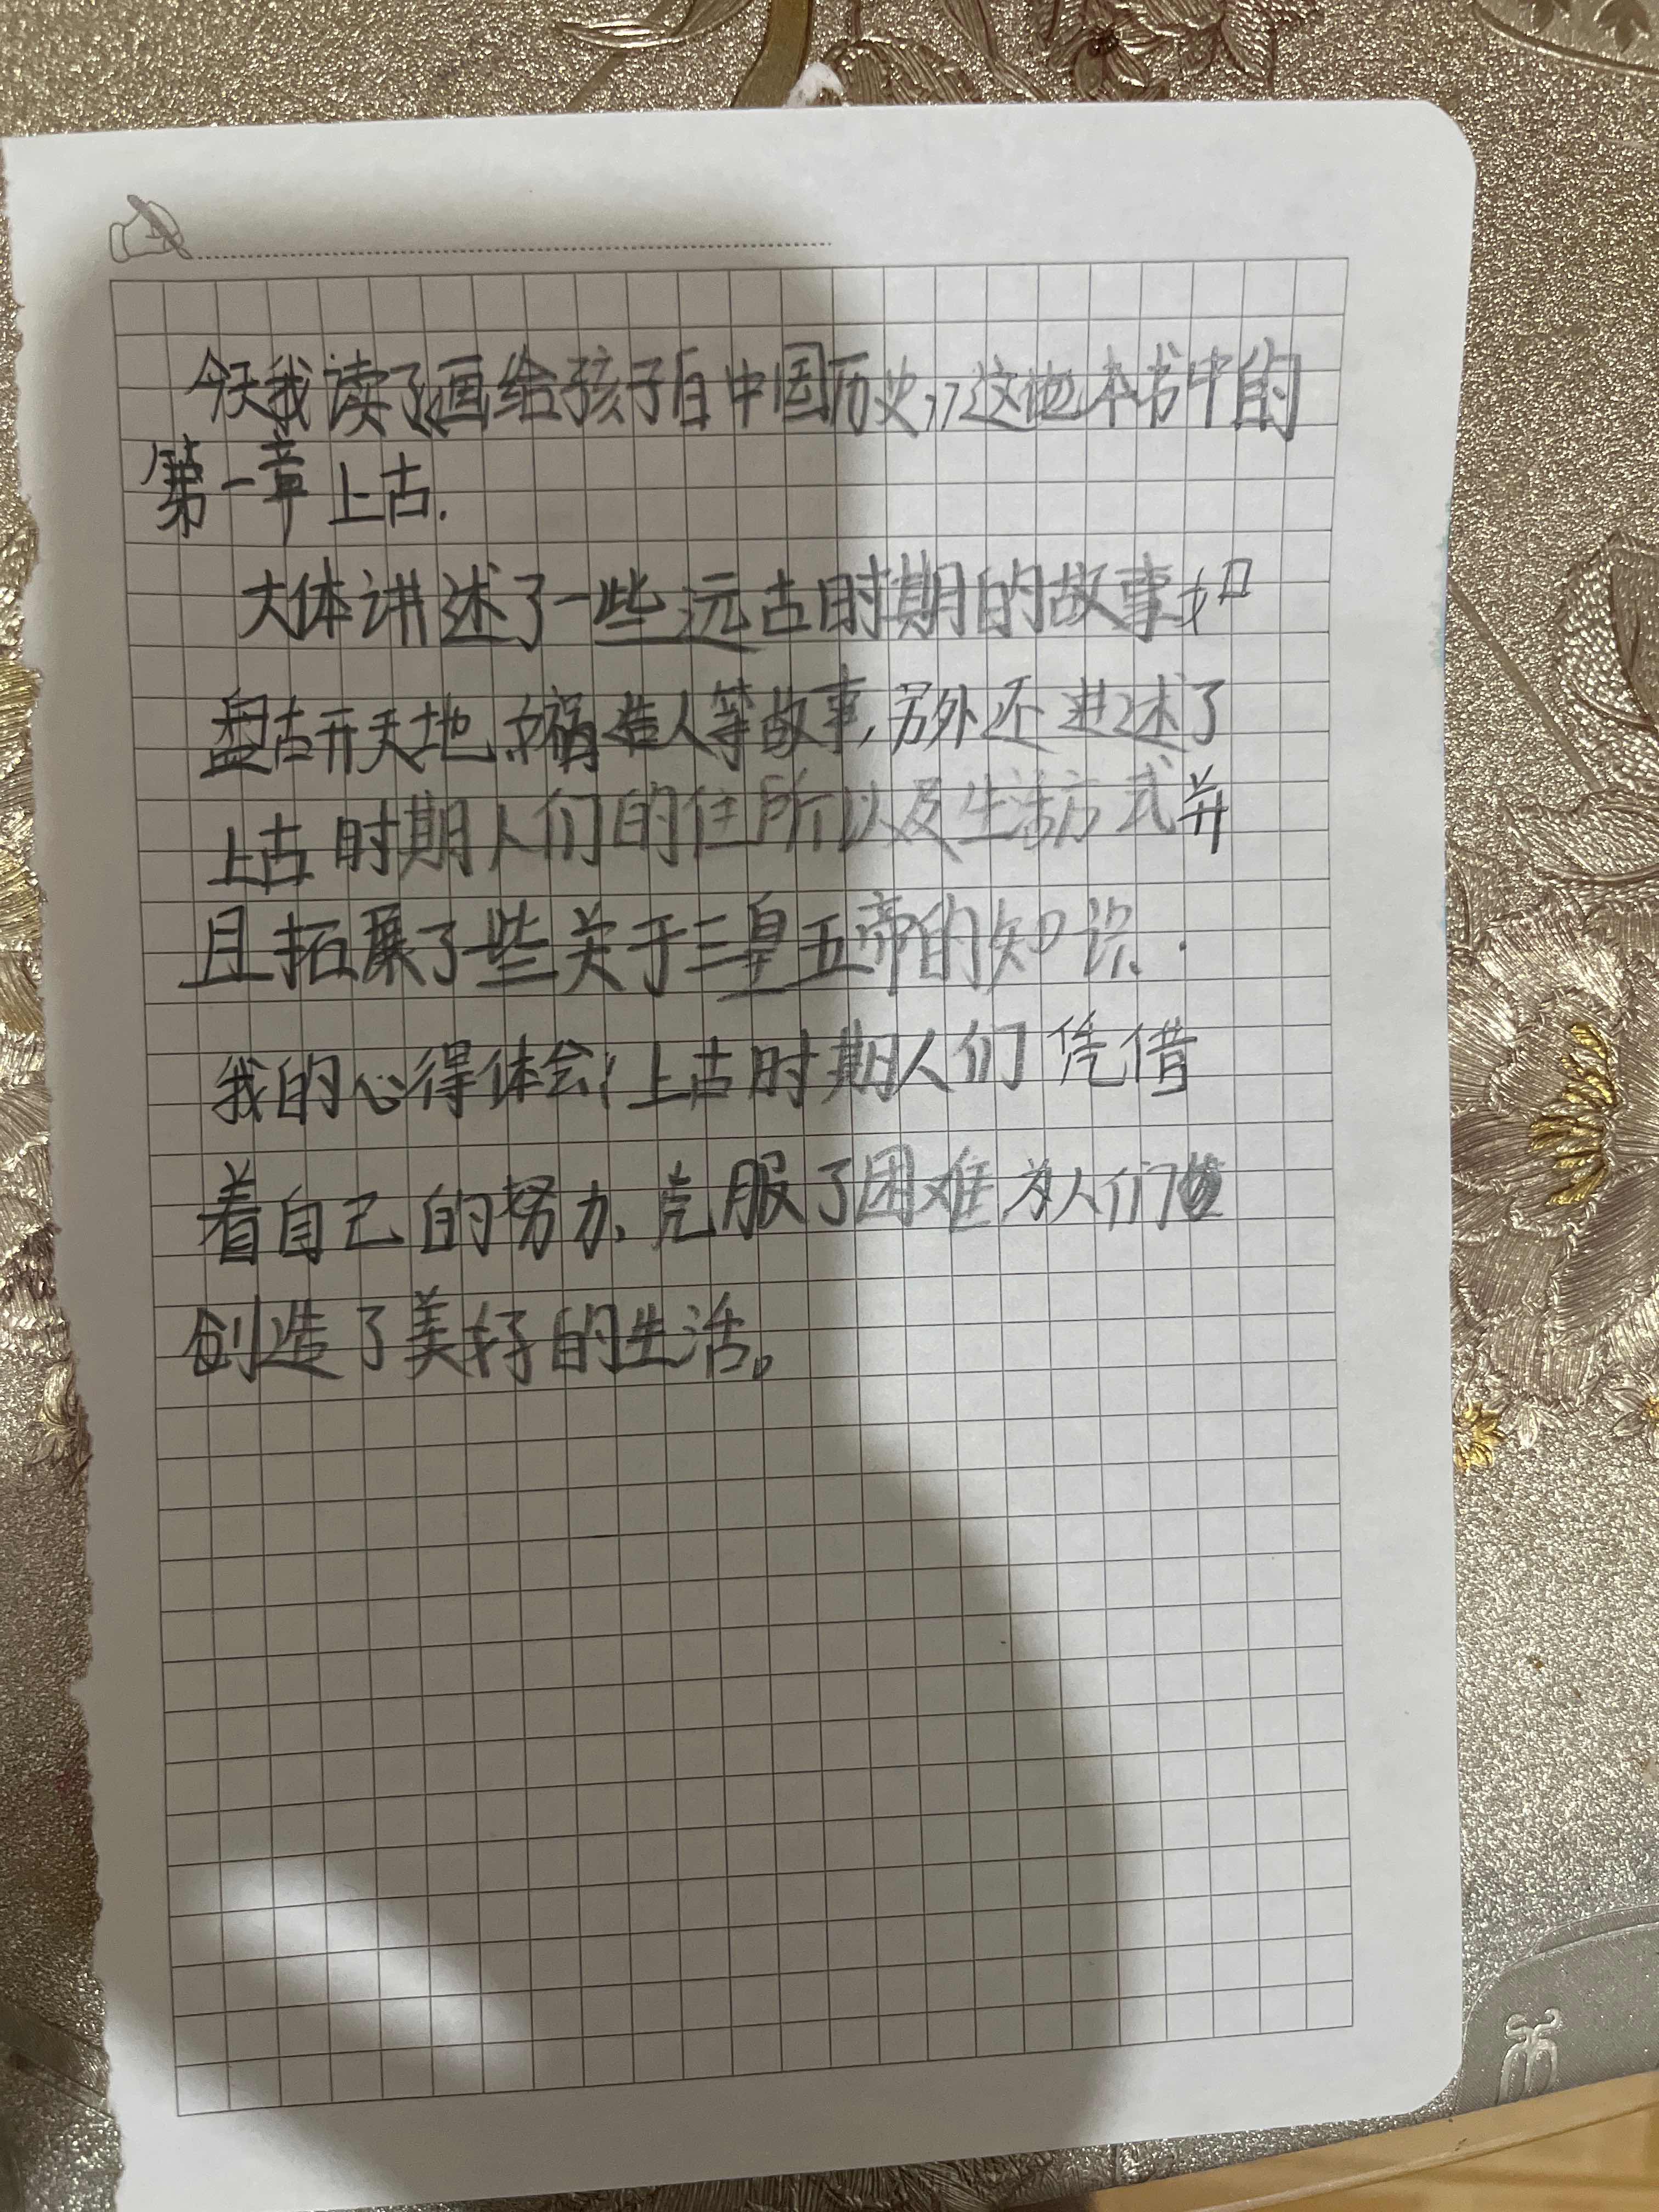 今天我读了《画给孩子自中国历史》这地本书中的
第一章上古.
大体讲述了一些远古时期的故事如
盘古开天地,女娲造人等故事,另外还讲述了
上古时期人们的住所以及生活方式并
且拓展了一些关于三皇五帝的知识.
我的心得体会:上古时期人们凭借
着自己的努力、克服了困难为人们
创造了美好的生活。